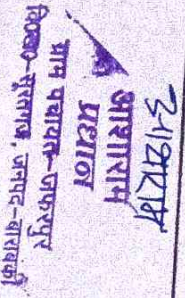 आशाराम
आशाराम
प्रधान
ग्राम पंचायत-जफरपुर
वि०ख०-सूरतगंज, जनपद-बाराबंकी